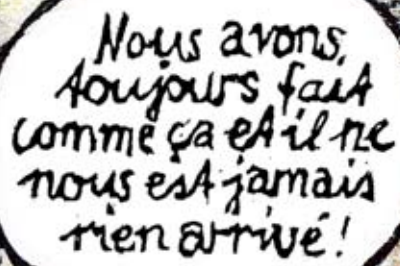 Nous avons
toujours fait
comme ça et il ne
nous est jamais
rien arrivé !